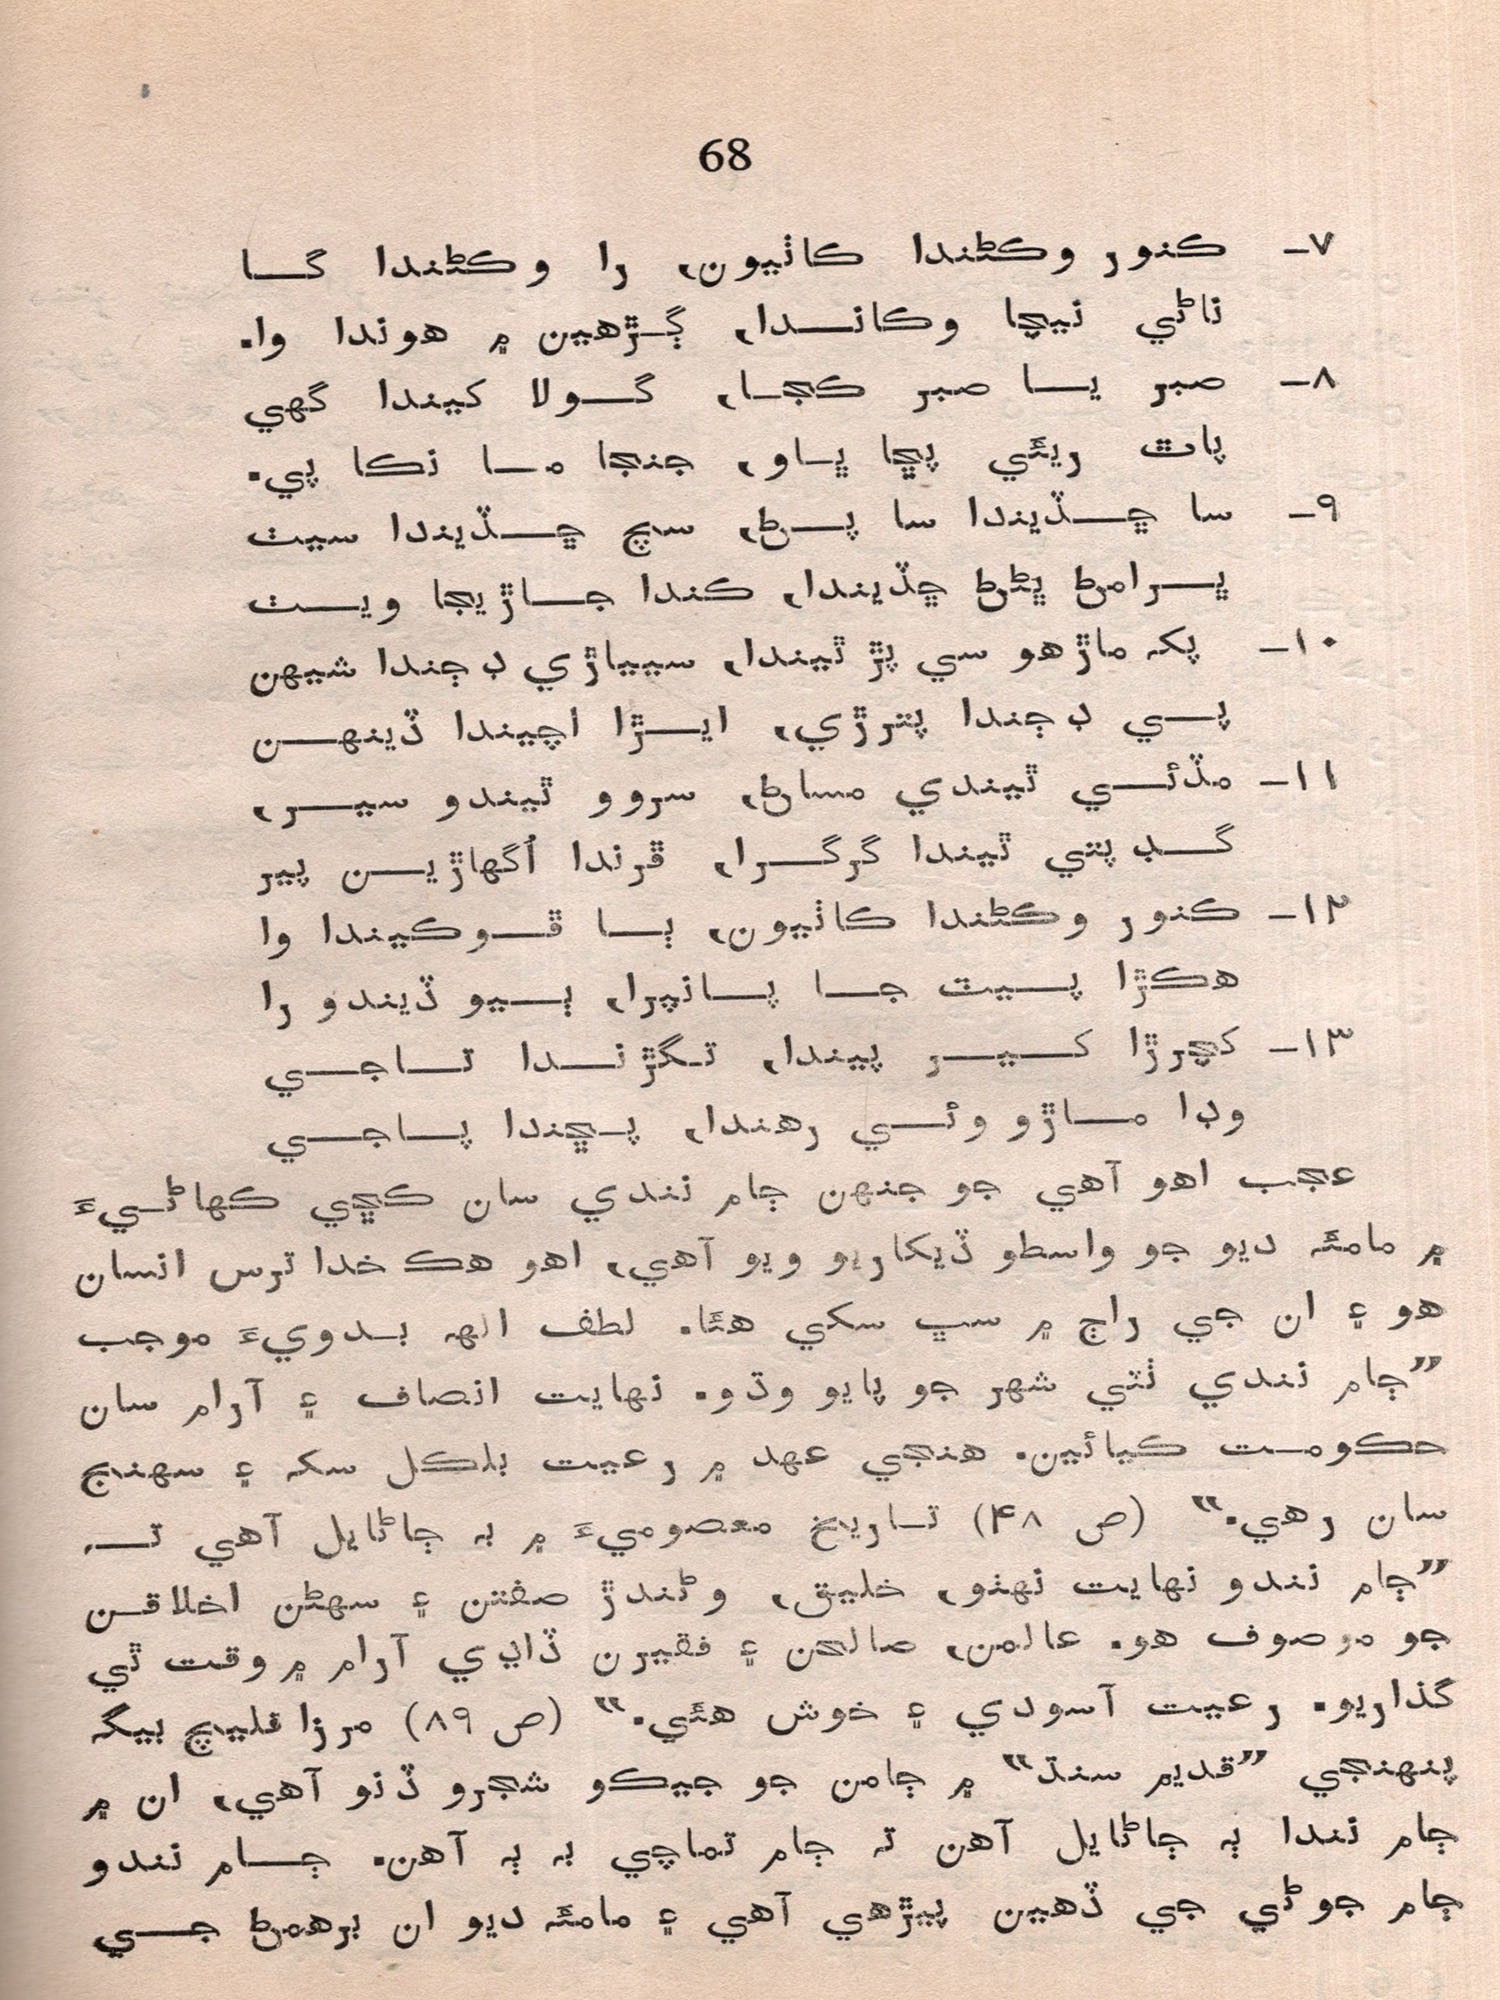 68
۷– ڪنور وڪڻندا ڪاٺيون، را وڪڻندا گا
ناڻي نيچا وڪاندا، ڳڙهين ۾ هوندا وا.
۸– صبر يا صبر ڪجا، گولا کيندا گهي
پاٿ ريئي پڇا ڀاو، جنجا ما نڪا پي.
۹– سا ڇڏيندا سا پڻ، سچ ڇڏيندا سيٺ
ڀرامڻ ڀڻڻ ڇڏيندا، ڪندا جاڙيجا ويٺ
۱۰– پکہ ماڙهو سي پڙ ٿيندا، سيياڙي ڊڄندا شيهن
پي ڊڄندا پٽرڙي، ايڙا اچيندا ڏينهن
۱۱– مڏئي ٿيندي مساڻ، سروو ٿيندو سير،
گڊ پٽي ٿيندا گرگرا، ڦرندا اُگهاڙين پير
۱۲– ڪنور وڪڻندا ڪاٺيون، ٻا ڦوڪيندا وا
هڪڙا پيٽ جا پانپرا، ٻيو ڏيندو را
۱۳– کچرڙا کير پيندا، تگڙندا تاجي
وڊا ماڙو وئي رهندا، پڇندا پاجي
عجب اهو آهي جو جنهن ڄام نندي سان ڪڇي ڪهاڻيءَ
۾ مامئہ ديو جو واسطو ڏيکاريو ويو آهي، اهو هڪ خدا ترس انسان
هو ۽ ان جي راڄ ۾ سڀ سکي هئا. لطف الهہ بدويءَ موجب
”ڄام نندي ٺٽي شهر جو پايو وڌو. نهايت انصاف ۽ آرام سان
حڪومت ڪيائين. هنجي عهد ۾ رعيت بلڪل سکہ ۽ سهنج
سان رهي.“ (ص ۴۸) تاريخ معصوميءَ ۾ بہ ڄاڻايل آهي تہ
”ڄام نندو نهايت نهٺو، خليق، وڻندڙ صفتن ۽ سهڻن اخلاقن
جو موصوف هو. عالمن، صالحن ۽ فقيرن ڏاڍي آرام ۾ وقت ٿي
گذاريو. رعيت آسودي ۽ خوش هئي.“ (ص ۸۹) مرزا قليچ بيگہ
پنهنجي ”قديم سنڌ“ ۾ ڄامن جو جيڪو شجرو ڏنو آهي، ان ۾
ڄام نندا ٻہ ڄاڻايل آهن تہ ڄام تماچي بہ ٻہ آهن. ڄام نندو
ڄام جوڻي جي ڏهين پيڙهي آهي ۽ مامئہ ديو ان برهمڻ جي